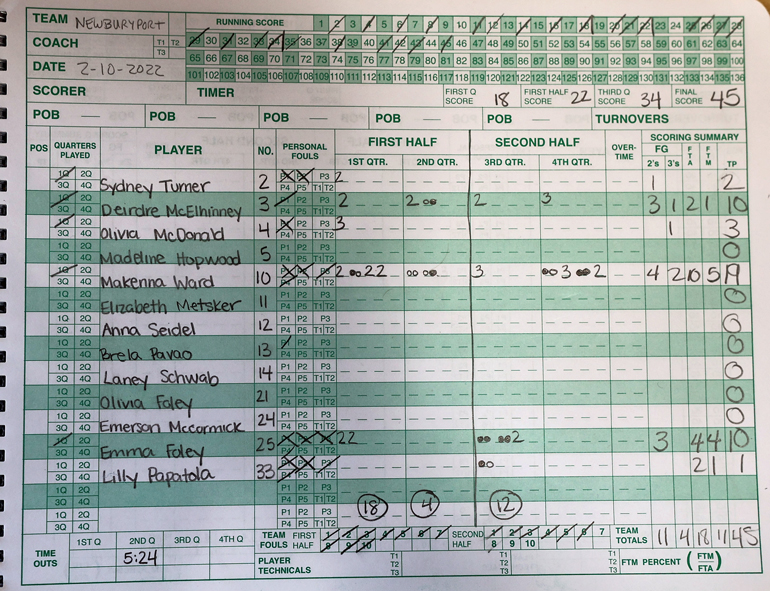 TEAM NEWBURYPORT RUNNING SCORE 1 2 3 4 5 6 7 8 9 10 11 12 13 14 15 16 17 18 19 20 21 22 23 24 25 26 27 28
COACH T1 T2 T3 29 30 31 32 33 34 35 36 37 38 39 40 41 42 43 44 45 46 47 48 49 50 51 52 53 54 55 56 57 58 59 60 61 62 63 64
DATE 2-10-2022 65 66 67 68 69 70 71 72 73 74 75 76 77 78 79 80 81 82 83 84 85 86 87 88 89 90 91 92 93 94 95 96 97 98 99 100
101 102 103 104 105 106 107 108 109 110 111 112 113 114 115 116 117 118 119 120 121 122 123 124 125 126 127 128 129 130 131 132 133 134 135 136
SCORER TIMER FIRST Q SCORE 18 FIRST HALF SCORE 22 THIRD Q SCORE 34 FINAL SCORE 45
POB — POB — POB — POB — POB — TURNOVERS
POS QUARTERS PLAYED PLAYER NO. PERSONAL FOULS FIRST HALF SECOND HALF OVER-TIME SCORING SUMMARY
1ST QTR. 2ND QTR. 3RD QTR. 4TH QTR. FG 2's 3's FTA FTM TP
1Q 2Q 3Q 4Q Sydney Turner 2 P1 P2 P3 P4 P5 T1 T2 2 1 2
1Q 2Q 3Q 4Q Deirdre McElhinney 3 P1 P2 P3 P4 P5 T1 T2 2 2 2 3 3 1 2 1 10
1Q 2Q 3Q 4Q Olivia McDonald 4 P1 P2 P3 P4 P5 T1 T2 3 1 3
1Q 2Q 3Q 4Q Madeline Hopwood 5 P1 P2 P3 P4 P5 T1 T2 0
1Q 2Q 3Q 4Q Makenna Ward 10 P1 P2 P3 P4 P5 T1 T2 2 22 3 3 2 4 2 10 5 19
1Q 2Q 3Q 4Q Elizabeth Metsker 11 P1 P2 P3 P4 P5 T1 T2 0
1Q 2Q 3Q 4Q Anna Seidel 12 P1 P2 P3 P4 P5 T1 T2 0
1Q 2Q 3Q 4Q Brela Pavao 13 P1 P2 P3 P4 P5 T1 T2 0
1Q 2Q 3Q 4Q Laney Schwab 14 P1 P2 P3 P4 P5 T1 T2 0
1Q 2Q 3Q 4Q Olivia Foley 21 P1 P2 P3 P4 P5 T1 T2 0
1Q 2Q 3Q 4Q Emerson McCormick 24 P1 P2 P3 P4 P5 T1 T2 0
1Q 2Q 3Q 4Q Emma Foley 25 P1 P2 P3 P4 P5 T1 T2 22 2 3 4 4 10
1Q 2Q 3Q 4Q Lilly Papatola 33 P1 P2 P3 P4 P5 T1 T2 2 1 1
1Q 2Q 3Q 4Q P1 P2 P3 P4 P5 T1 T2
1Q 2Q 3Q 4Q P1 P2 P3 P4 P5 T1 T2 18 4 12
TIME OUTS 1ST Q 2ND Q 3RD Q 4TH Q TEAM FOULS FIRST HALF 1 2 3 4 5 6 7 8 9 10 SECOND HALF 1 2 3 4 5 6 7 8 9 10 TEAM TOTALS 11 4 18 11 45
5:24 PLAYER TECHNICALS T1 T2 T3 T1 T2 T3 T1 T2 T3 T1 T2 T3 FTM PERCENT (FTM FTA)